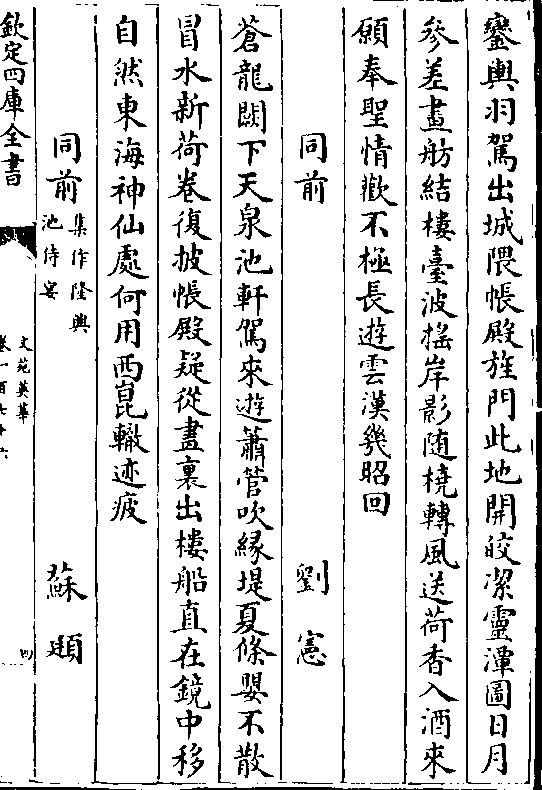 鑾輿羽駕出城隈帳殿旌門此地開皎潔靈潭圖日月
參差畫舫結樓臺波揺岸影随橈轉風送荷香入酒來
願奉聖情歡不極長遊雲漢幾昭回
同前 劉憲
蒼龍闕下天泉池軒駕來遊簫管吹緣堤夏篠嬰不散
冒水新荷卷復披帳殿疑從畫裏出樓船直在鏡中移
自然東海神仙處何用西崑轍迹疲
同前 集作隆興池侍宴 蘇頲
欽定四庫全書
文苑英華
卷一百七十六
四